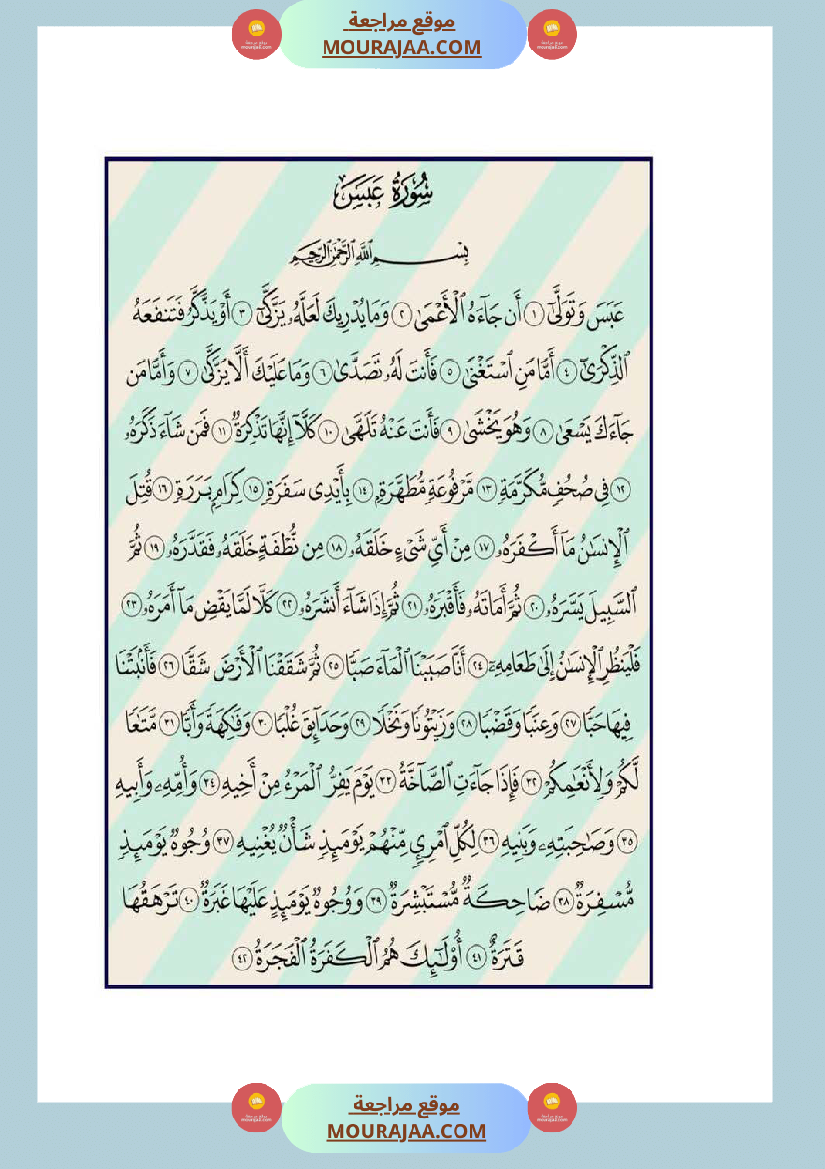 موقع مراجعة
MOURAJAA.COM
سُورَةُ عَبَسَ
بِسْمِ ٱللَّهِ ٱلرَّحْمَٰنِ ٱلرَّحِيمِ
عَبَسَ وَتَوَلَّىٰٓ ١ أَن جَآءَهُ ٱلْأَعْمَىٰ ٢ وَمَا يُدْرِيكَ لَعَلَّهُۥ يَزَّكَّىٰٓ ٣ أَوْ يَذَّكَّرُ فَتَنفَعَهُ
ٱلذِّكْرَىٰٓ ٤ أَمَّا مَنِ ٱسْتَغْنَىٰ ٥ فَأَنتَ لَهُۥ تَصَدَّىٰ ٦ وَمَا عَلَيْكَ أَلَّا يَزَّكَّىٰ ٧ وَأَمَّا مَن
جَآءَكَ يَسْعَىٰ ٨ وَهُوَ يَخْشَىٰ ٩ فَأَنتَ عَنْهُ تَلَهَّىٰ ١٠ كَلَّآ إِنَّهَا تَذْكِرَةٌ ١١ فَمَن شَآءَ ذَكَرَهُۥ
١٢ فِى صُحُفٍ مُّكَرَّمَةٍ ١٣ مَّرْفُوعَةٍ مُّطَهَّرَةٍۭ ١٤ بِأَيْدِى سَفَرَةٍ ١٥ كِرَامٍۭ بَرَرَةٍ ١٦ قُتِلَ
ٱلْإِنسَٰنُ مَآ أَكْفَرَهُۥ ١٧ مِنْ أَىِّ شَىْءٍ خَلَقَهُۥ ١٨ مِن نُّطْفَةٍ خَلَقَهُۥ فَقَدَّرَهُۥ ١٩ ثُمَّ
ٱلسَّبِيلَ يَسَّرَهُۥ ٢٠ ثُمَّ أَمَاتَهُۥ فَأَقْبَرَهُۥ ٢١ ثُمَّ إِذَا شَآءَ أَنشَرَهُۥ ٢٢ كَلَّا لَمَّا يَقْضِ مَآ أَمَرَهُۥ ٢٣
فَلْيَنظُرِ ٱلْإِنسَٰنُ إِلَىٰ طَعَامِهِۦٓ ٢٤ أَنَّا صَبَبْنَا ٱلْمَآءَ صَبًّا ٢٥ ثُمَّ شَقَقْنَا ٱلْأَرْضَ شَقًّا ٢٦ فَأَنۢبَتْنَا
فِيهَا حَبًّا ٢٧ وَعِنَبًا وَقَضْبًا ٢٨ وَزَيْتُونًا وَنَخْلًا ٢٩ وَحَدَآئِقَ غُلْبًا ٣٠ وَفَٰكِهَةً وَأَبًّا ٣١ مَّتَٰعًا
لَّكُمْ وَلِأَنْعَٰمِكُمْ ٣٢ فَإِذَا جَآءَتِ ٱلصَّآخَّةُ ٣٣ يَوْمَ يَفِرُّ ٱلْمَرْءُ مِنْ أَخِيهِ ٣٤ وَأُمِّهِۦ وَأَبِيهِ
٣٥ وَصَٰحِبَتِهِۦ وَبَنِيهِ ٣٦ لِكُلِّ ٱمْرِئٍ مِّنْهُمْ يَوْمَئِذٍ شَأْنٌ يُغْنِيهِ ٣٧ وُجُوهٌ يَوْمَئِذٍ
مُّسْفِرَةٌ ٣٨ ضَاحِكَةٌ مُّسْتَبْشِرَةٌ ٣٩ وَوُجُوهٌ يَوْمَئِذٍ عَلَيْهَا غَبَرَةٌ ٤٠ تَرْهَقُهَا
قَتَرَةٌ ٤١ أُو۟لَٰٓئِكَ هُمُ ٱلْكَفَرَةُ ٱلْفَجَرَةُ ٤٢
موقع مراجعة
MOURAJAA.COM